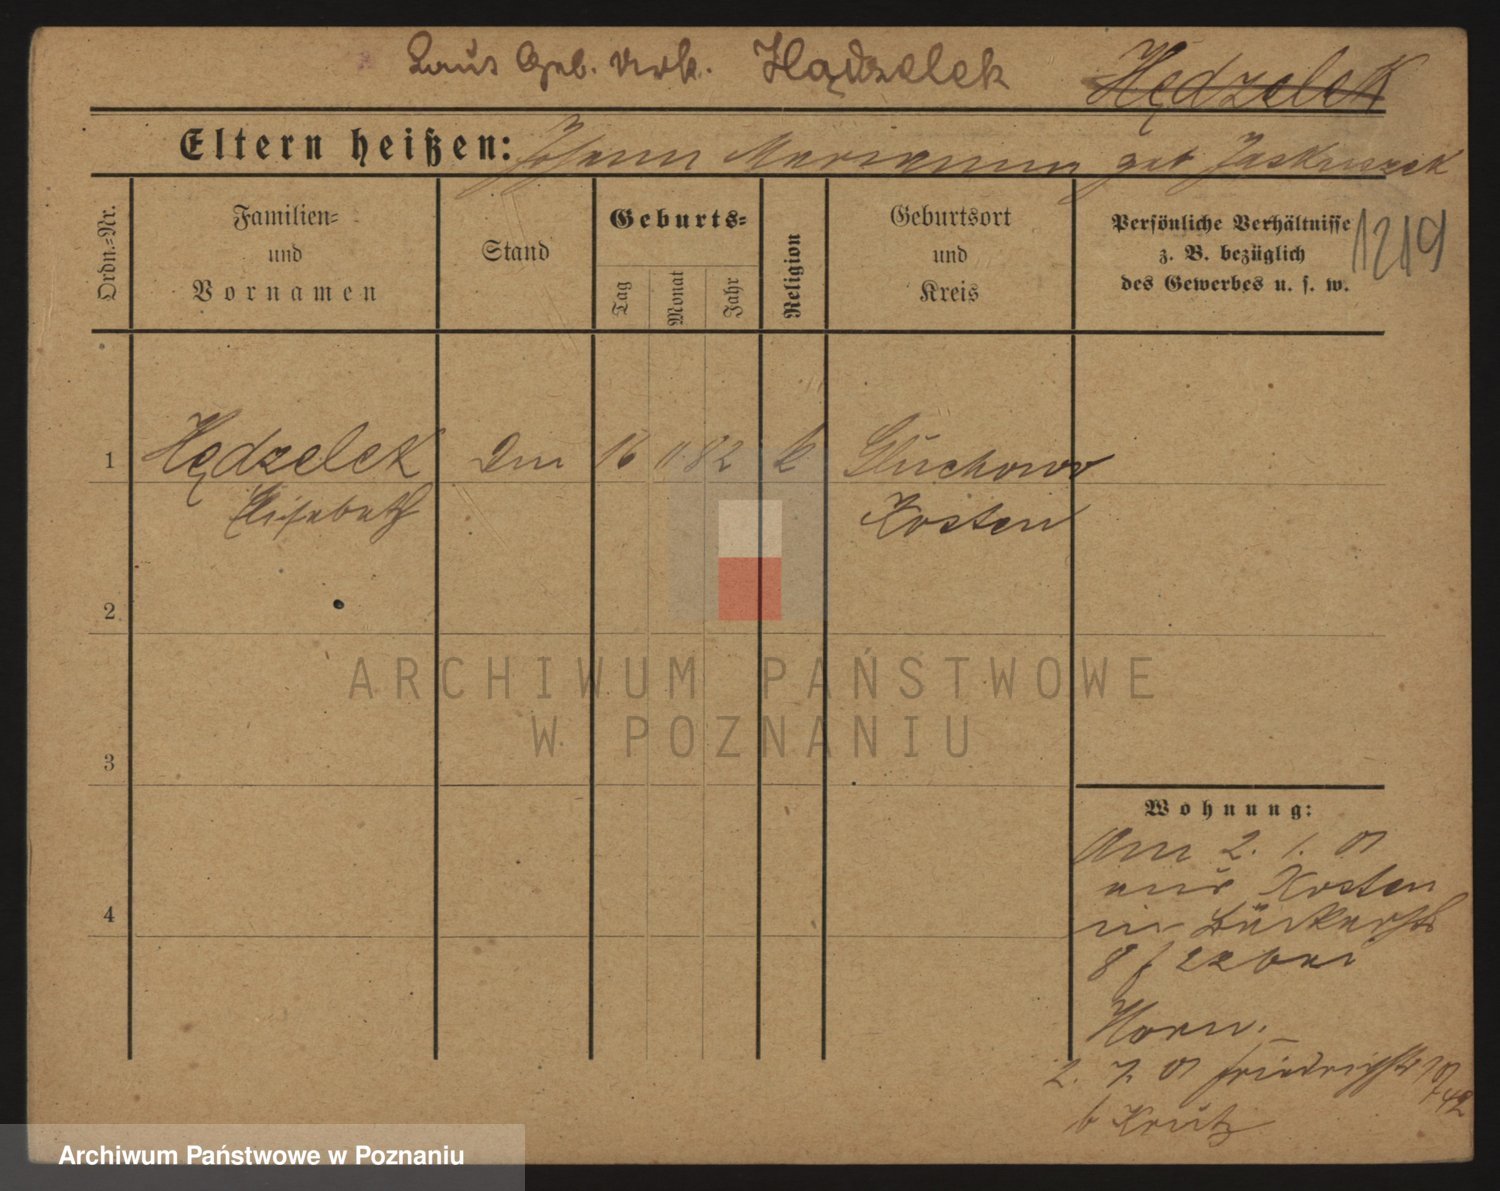 Laut Geb. Urk. Hądzelek Hędzelek
Eltern heißen: Johann Marianna geb Jaskuszek
Ordn.-Nr.
Familien-
und
Vornamen
Stand
Geburts-
Tag
Monat
Jahr
Religion
Geburtsort
und
Kreis
Persönliche Verhältnisse
z. B. bezüglich
des Gewerbes u. s. w.
1219
1 Hędzelek 16 11. 82 k Gluchowo
Elisabeth Kosten
2
3
4
ARCHIWUM PAŃSTWOWE
W POZNANIU
Wohnung:
Am 2. 1. 01
aus Kosten
in Bäckerstr
8 bei
Horn.
2. 7. 01 Friedrichstr
b Krutz
Archiwum Państwowe w Poznaniu